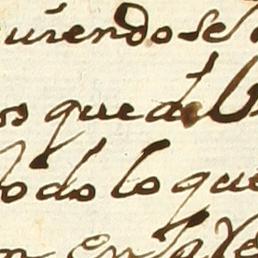 uiendose
os que de
todo lo que
en la